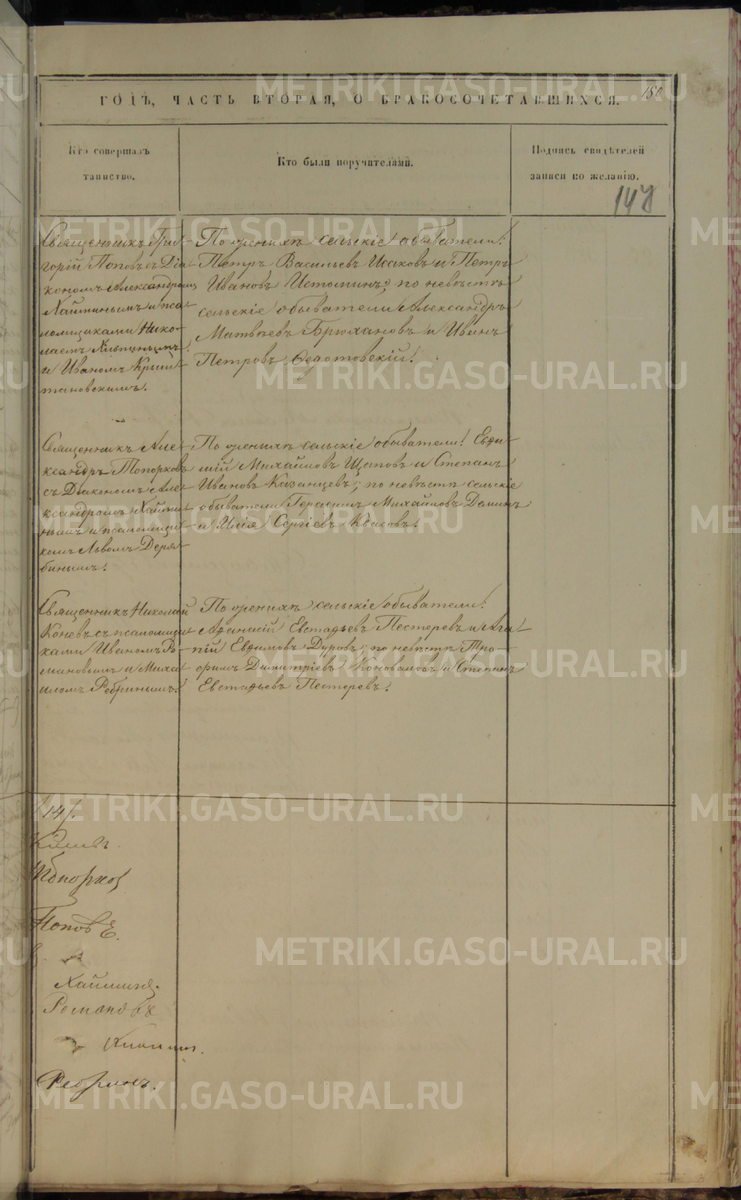 ГОДЪ, ЧАСТЬ ВТОРАЯ, О БРАКОСОЧЕТАВШИХСЯ.
150
Кто совершалъ
таинство.
Кто были поручителями.
Подпись свидѣтелей
записи по желанію.
148
Священникъ Гри-
горій Поповъ съ Діа-
кономъ Александромъ
Хайминымъ и пса-
ломщиками Нико-
лаемъ
и Иваномъ
По женихѣ сельскіе обыватели:
Петръ Васильевъ Исаковъ и Петръ
Ивановъ Истоминъ; по невѣстѣ
сельскіе обыватели Александръ
Матвѣевъ Брюхановъ и Иванъ
Петровъ Федотовскій.
Священникъ Але-
ксандръ Топорковъ
съ Діакономъ Але-
ксандромъ Хайми-
нымъ и псаломщи-
комъ Львомъ Деря-
бинымъ.
По женихѣ сельскіе обыватели: Евфи-
мій Михайловъ Щаповъ и Степанъ
Ивановъ Казанцевъ; по невѣстѣ сельскіе
обыватели Герасимъ Михайловъ Деминъ
и Илія Сергіевъ Квасовъ.
Священникъ Николай
Коневъ съ псаломщи-
ками Иваномъ Ро-
мановымъ и Миха-
иломъ Ребринымъ.
По женихѣ сельскіе обыватели:
Афанасій Евстафьевъ Пестеревъ и Ага-
пій Евфимовъ Дуровъ; по невѣстѣ Тро-
фимъ Димитріевъ Коноваловъ и Степанъ
Евстафьевъ Пестеревъ.
147.
Поповъ
Хайминъ.
Романовъ
Ребринъ.
METRIKI.GASO-URAL.RU